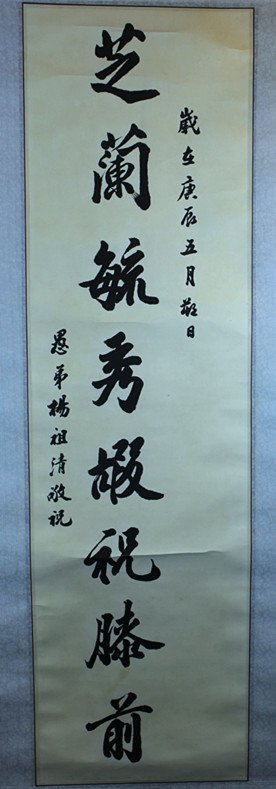 歲在庚辰五月敬日
芝蘭毓秀嘏祝膝前
愚弟楊祖清敬祝